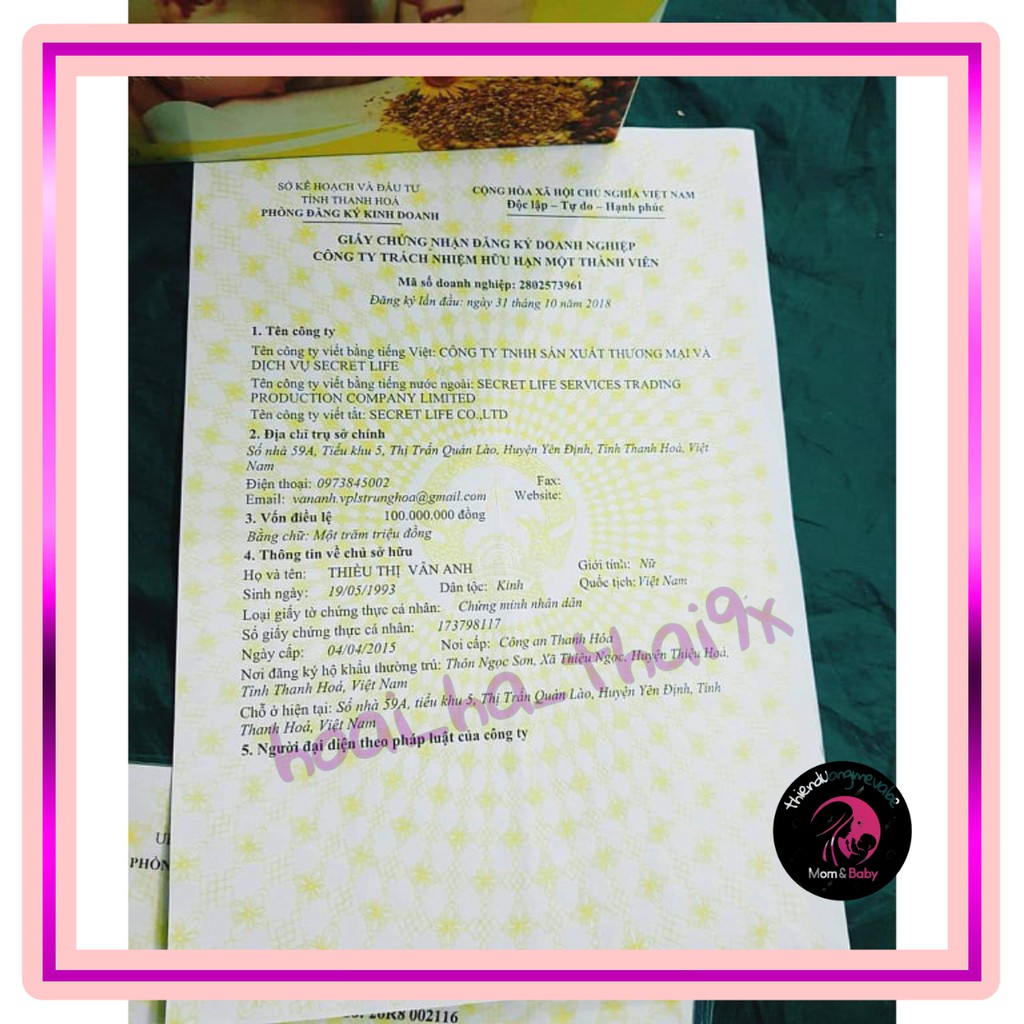 SỞ KẾ HOẠCH VÀ ĐẦU TƯ
TỈNH THANH HOÁ
PHÒNG ĐĂNG KÝ KINH DOANH
CỘNG HÒA XÃ HỘI CHỦ NGHĨA VIỆT NAM
Độc lập – Tự do – Hạnh phúc
GIẤY CHỨNG NHẬN ĐĂNG KÝ DOANH NGHIỆP
CÔNG TY TRÁCH NHIỆM HỮU HẠN MỘT THÀNH VIÊN
Mã số doanh nghiệp: 2802573961
Đăng ký lần đầu: ngày 31 tháng 10 năm 2018
1. Tên công ty
Tên công ty viết bằng tiếng Việt: CÔNG TY TNHH SẢN XUẤT THƯƠNG MẠI VÀ
DỊCH VỤ SECRET LIFE
Tên công ty viết bằng tiếng nước ngoài: SECRET LIFE SERVICES TRADING
PRODUCTION COMPANY LIMITED
Tên công ty viết tắt: SECRET LIFE CO.,LTD
2. Địa chỉ trụ sở chính
Số nhà 59A, Tiểu khu 5, Thị Trấn Quán Lào, Huyện Yên Định, Tỉnh Thanh Hoá, Việt
Nam
Điện thoại: 0973845002 Fax:
Email: vananh.vplstrunghoa@gmail.com Website:
3. Vốn điều lệ 100.000.000 đồng
Bằng chữ: Một trăm triệu đồng
4. Thông tin về chủ sở hữu
Họ và tên: THIỀU THỊ VÂN ANH Giới tính: Nữ
Sinh ngày: 19/05/1993 Dân tộc: Kinh Quốc tịch: Việt Nam
Loại giấy tờ chứng thực cá nhân: Chứng minh nhân dân
Số giấy chứng thực cá nhân: 173798117
Ngày cấp: 04/04/2015 Nơi cấp: Công an Thanh Hóa
Nơi đăng ký hộ khẩu thường trú: Thôn Ngọc Sơn, Xã Thiệu Ngọc, Huyện Thiệu Hoá,
Tỉnh Thanh Hoá, Việt Nam
Chỗ ở hiện tại: Số nhà 59A, tiểu khu 5, Thị Trấn Quán Lào, Huyện Yên Định, Tỉnh
Thanh Hoá, Việt Nam
5. Người đại diện theo pháp luật của công ty
hoai_ha_thai9x
thienduongmevabe
Mom & Baby
PHÒN
20R8 002116